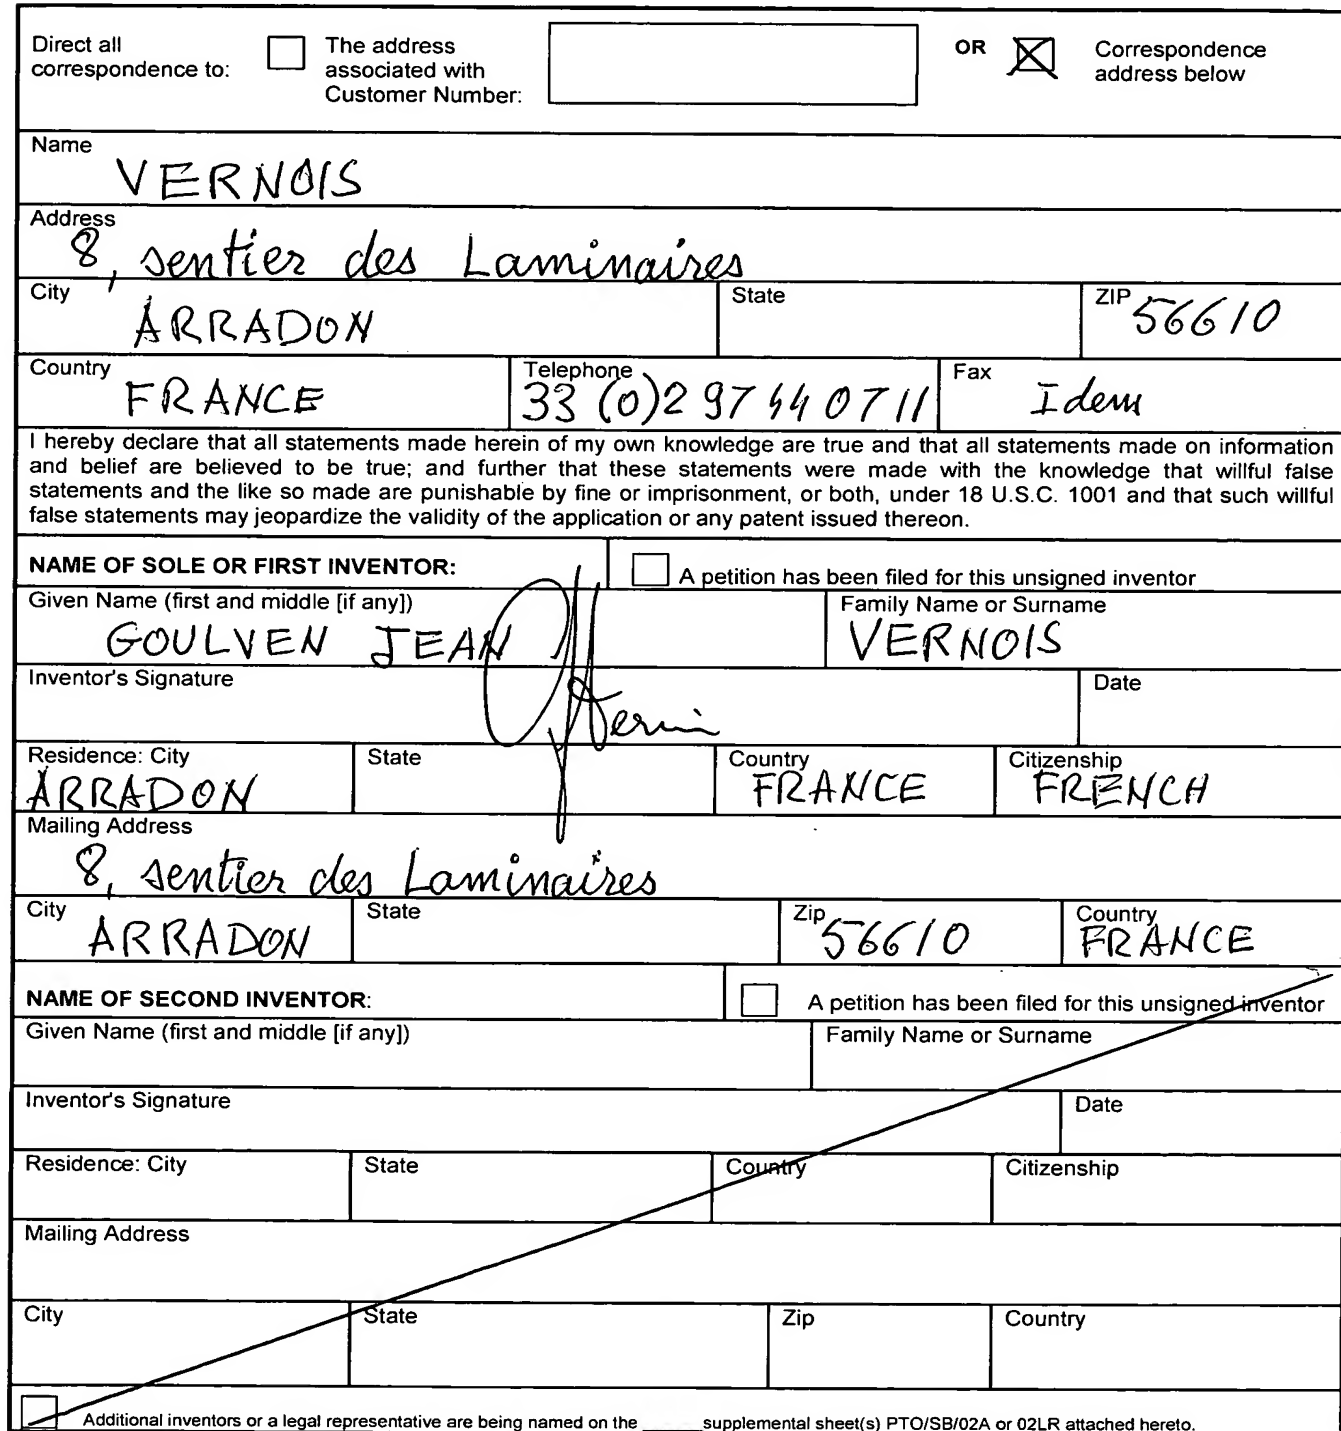 Direct all correspondence to: The address associated with Customer Number: OR Correspondence address below
Name
VERNOIS
Address
8, sentier des Laminaires
City State ZIP
ARRADON 56610
Country Telephone Fax
FRANCE 33 (0)2 97 44 07 11 Idem
I hereby declare that all statements made herein of my own knowledge are true and that all statements made on information
and belief are believed to be true; and further that these statements were made with the knowledge that willful false
statements and the like so made are punishable by fine or imprisonment, or both, under 18 U.S.C. 1001 and that such willful
false statements may jeopardize the validity of the application or any patent issued thereon.
NAME OF SOLE OR FIRST INVENTOR: A petition has been filed for this unsigned inventor
Given Name (first and middle [if any]) Family Name or Surname
GOULVEN JEAN VERNOIS
Inventor's Signature Date
Residence: City State Country Citizenship
ARRADON FRANCE FRENCH
Mailing Address
8, sentier des Laminaires
City State Zip Country
ARRADON 56610 FRANCE
NAME OF SECOND INVENTOR: A petition has been filed for this unsigned inventor
Given Name (first and middle [if any]) Family Name or Surname
Inventor's Signature Date
Residence: City State Country Citizenship
Mailing Address
City State Zip Country
Additional inventors or a legal representative are being named on the ______ supplemental sheet(s) PTO/SB/02A or 02LR attached hereto.